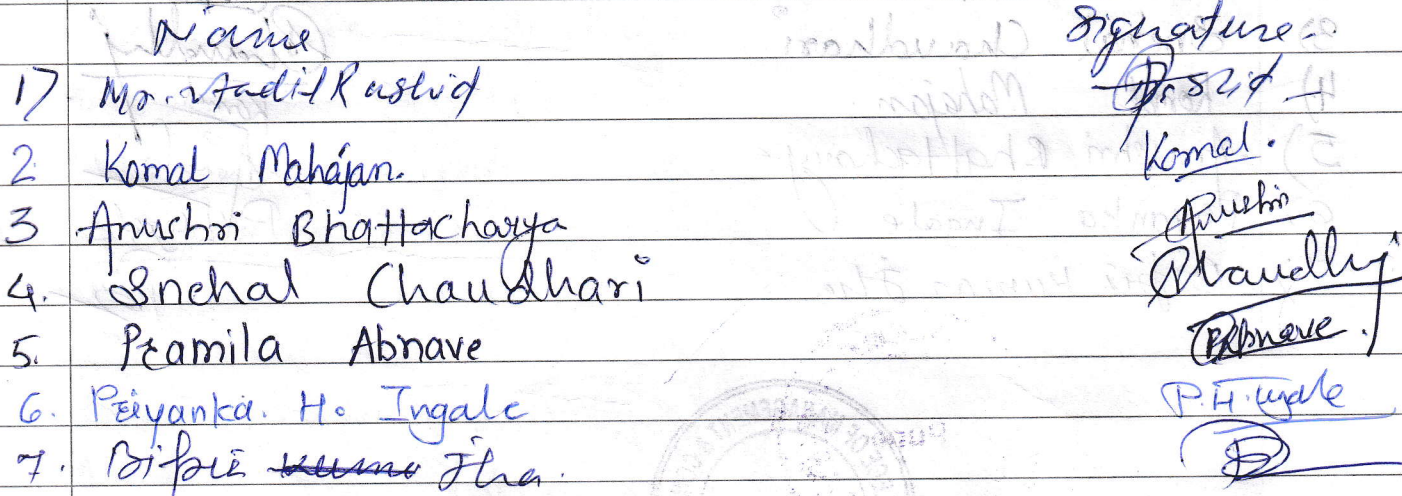 Name Signature
1) Mr. Aadil Rashid
2 Komal Mahajan. Komal.
3 Anushri Bhattacharya Anushri
4. Snehal Chaudhari
5. Pramila Abnave
6. Priyanka. H. Ingale P.H.Ingale
7. Jha.